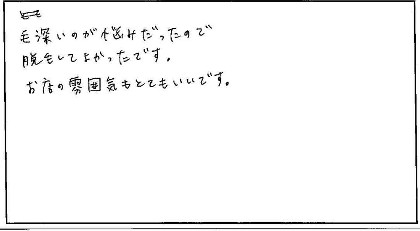 毛深いのが悩みだったので
脱毛してよかったです。
お店の雰囲気もとてもいいです。